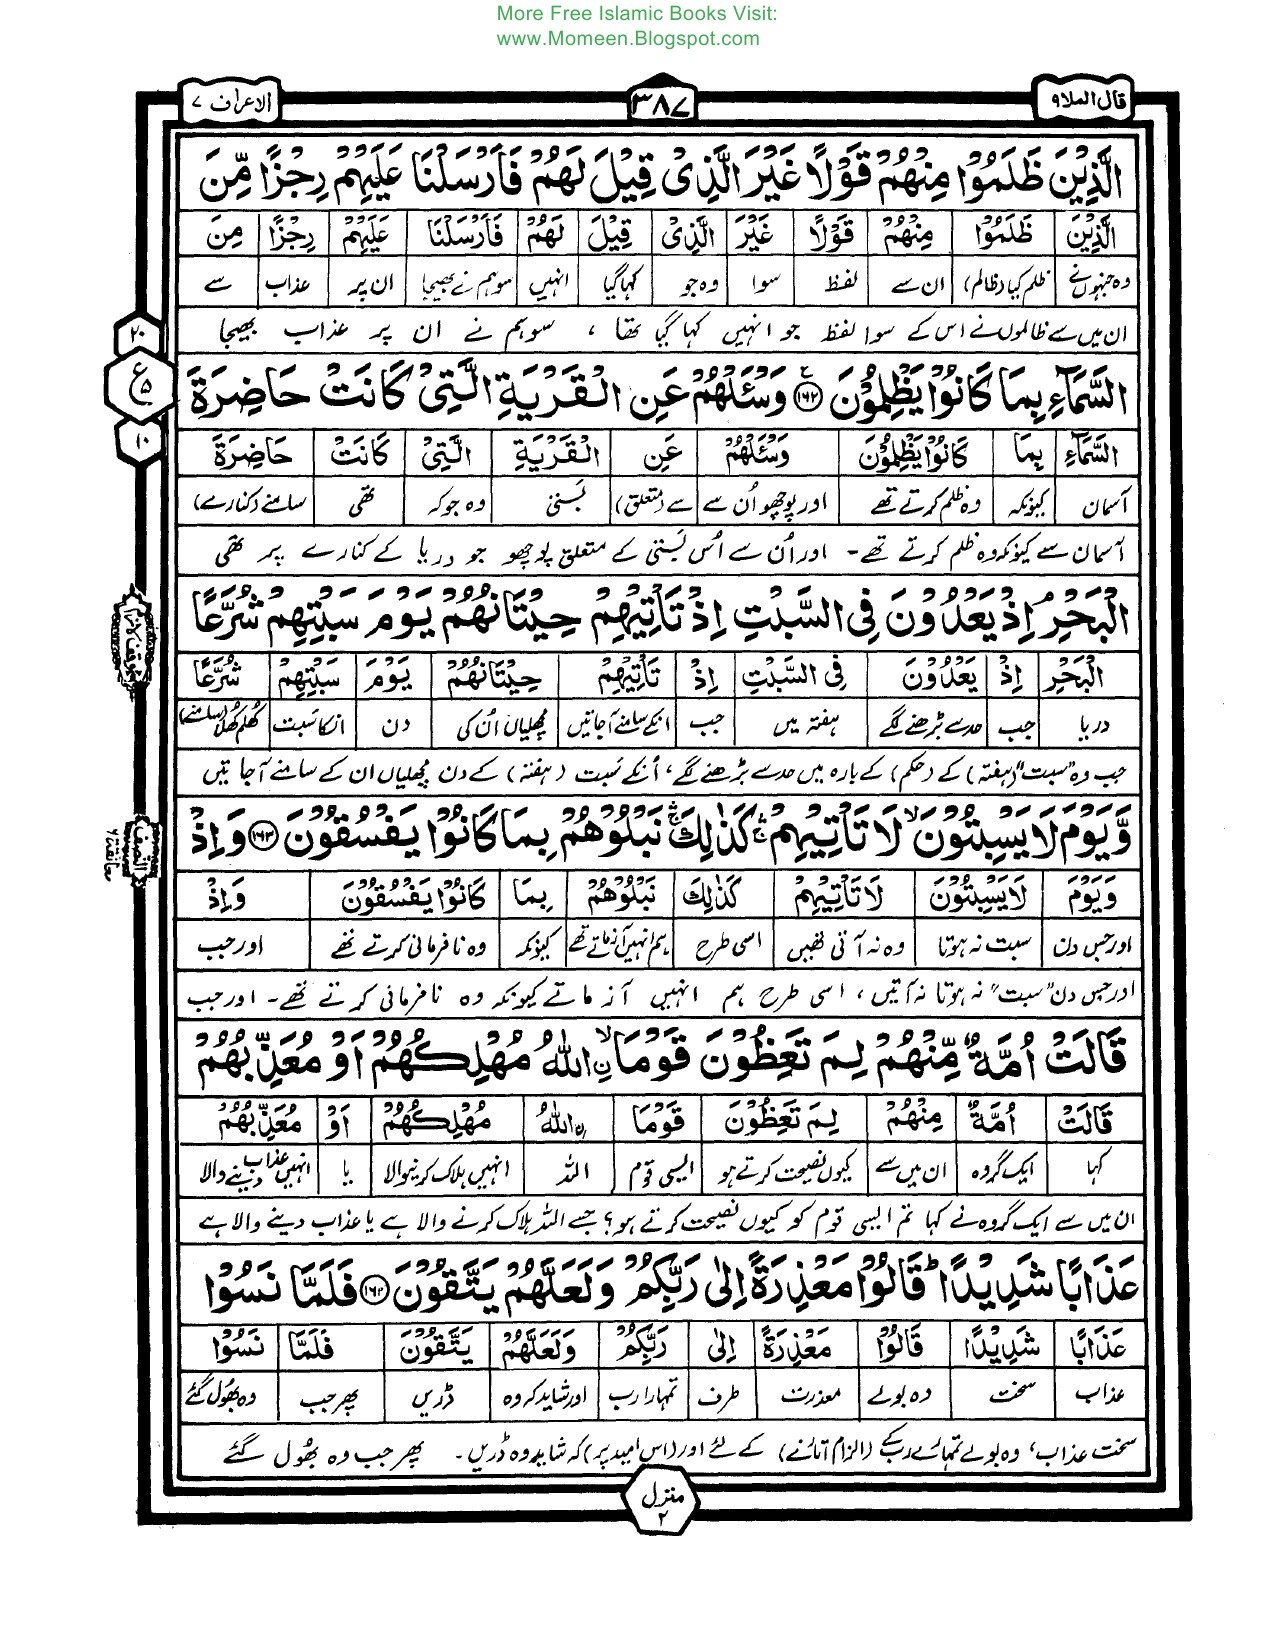 More Free Islamic Books Visit:
www.Momeen.Blogspot.com
قال الملا ۹ ۳۸۷ الاعراف ۷
الَّذِيْنَ ظَلَمُوْا مِنْهُمْ قَوْلًا غَيْرَ الَّذِىْ قِيْلَ لَهُمْ فَاَرْسَلْنَا عَلَيْهِمْ رِجْزًا مِّنَ
الَّذِيْنَ ظَلَمُوْا مِنْهُمْ قَوْلًا غَيْرَ الَّذِىْ قِيْلَ لَهُمْ فَاَرْسَلْنَا عَلَيْهِمْ رِجْزًا مِنَ
وہ جنہوں نے ظلم کیا (ظالم) ان سے لفظ سوا وہ جو کہا گیا انہیں سو ہم نے بھیجا ان پر عذاب سے
ان میں سے ظالموں نے اس کے سوا لفظ جو انہیں کہا گیا تھا ، سو ہم نے ان پر عذاب بھیجا
۲۰
ع
۵
۱۰
السَّمَآءِ بِمَا كَانُوْا يَظْلِمُوْنَ ۱۶۲ وَسْئَلْهُمْ عَنِ الْقَرْيَةِ الَّتِىْ كَانَتْ حَاضِرَةَ
السَّمَآءِ بِمَا كَانُوْا يَظْلِمُوْنَ وَسْئَلْهُمْ عَنِ الْقَرْيَةِ الَّتِىْ كَانَتْ حَاضِرَةَ
آسمان کیونکہ وہ ظلم کرتے تھے اور پوچھو اُن سے سے (متعلق) بستی وہ جو کہ تھی سامنے (کنارے)
آسمان سے کیونکہ وہ ظلم کرتے تھے۔ اور اُن سے اُس بستی کے متعلق پوچھو جو دریا کے کنارے پر تھی
الْبَحْرِ اِذْ يَعْدُوْنَ فِى السَّبْتِ اِذْ تَاْتِيْهِمْ حِيْتَانُهُمْ يَوْمَ سَبْتِهِمْ شُرَّعًا
الْبَحْرِ اِذْ يَعْدُوْنَ فِى السَّبْتِ اِذْ تَاْتِيْهِمْ حِيْتَانُهُمْ يَوْمَ سَبْتِهِمْ شُرَّعًا
دریا جب حد سے بڑھنے لگے ہفتہ میں جب انکے سامنے آجاتیں مچھلیاں اُن کی دن انکا سبت کھلم کھلا (سامنے)
جب وہ "سبت" (ہفتہ) کے (حکم) کے بارہ میں حد سے بڑھنے لگے، اُنکے سبت (ہفتہ) کے دن مچھلیاں ان کے سامنے آجاتیں
وَّيَوْمَ لَا يَسْبِتُوْنَ لا لَا تَاْتِيْهِمْ كَذٰلِكَ نَبْلُوْهُمْ بِمَا كَانُوْا يَفْسُقُوْنَ ۱۶۳ وَاِذْ
وَيَوْمَ لَا يَسْبِتُوْنَ لَا تَاْتِيْهِمْ كَذٰلِكَ نَبْلُوْهُمْ بِمَا كَانُوْا يَفْسُقُوْنَ وَاِذْ
اور جس دن سبت نہ ہوتا وہ نہ آتی تھیں اسی طرح ہم انہیں آزماتے تھے کیونکہ وہ نافرمانی کرتے تھے اور جب
اور جس دن "سبت" نہ ہوتا نہ آتیں، اسی طرح ہم انہیں آزماتے کیونکہ وہ نافرمانی کرتے تھے۔ اور جب
قَالَتْ اُمَّةٌ مِّنْهُمْ لِمَ تَعِظُوْنَ قَوْمَا لا ِۨ اللّٰهُ مُهْلِكُهُمْ اَوْ مُعَذِّبُهُمْ
قَالَتْ اُمَّةٌ مِنْهُمْ لِمَ تَعِظُوْنَ قَوْمَا ِۨ اللّٰهُ مُهْلِكُهُمْ اَوْ مُعَذِّبُهُمْ
کہا ایک گروہ ان میں سے کیوں نصیحت کرتے ہو ایسی قوم اللہ انہیں ہلاک کرنیوالا یا انہیں عذاب دینے والا
ان میں سے ایک گروہ نے کہا تم ایسی قوم کو کیوں نصیحت کرتے ہو؟ جسے اللہ ہلاک کرنے والا ہے یا عذاب دینے والا ہے
عَذَابًا شَدِيْدًا ط قَالُوْا مَعْذِرَةً اِلٰى رَبِّكُمْ وَلَعَلَّهُمْ يَتَّقُوْنَ ۱۶۴ فَلَمَّا نَسُوْا
عَذَابًا شَدِيْدًا قَالُوْا مَعْذِرَةً اِلٰى رَبِّكُمْ وَلَعَلَّهُمْ يَتَّقُوْنَ فَلَمَّا نَسُوْا
عذاب سخت وہ بولے معذرت طرف تمہارا رب اور شاید کہ وہ ڈریں پھر جب وہ بھول گئے
سخت عذاب، وہ بولے تمہارے رب کے (الزام اتارنے) کے لئے اور (اس امید پر) کہ شاید وہ ڈریں۔ پھر جب وہ بھول گئے
منزل
۲